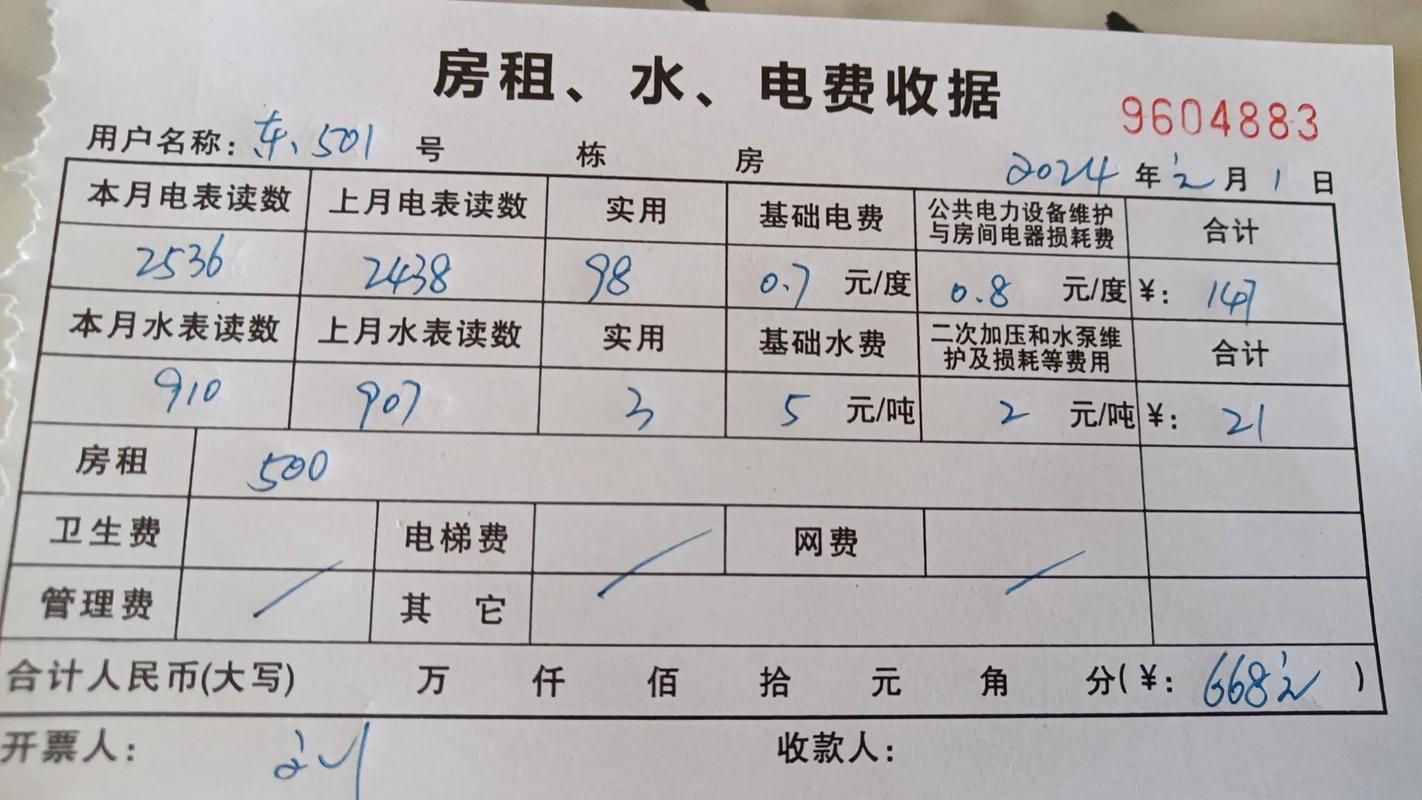 房租、水、电费收据
9604883
用户名称：东、501 号 栋 房 2024 年 月 1 日
本月电表读数 上月电表读数 实用 基础电费 公共电力设备维护与房间电器损耗费 合计
2536 2438 98 0.7 元/度 0.8 元/度 ¥：147
本月水表读数 上月水表读数 实用 基础水费 二次加压和水泵维护及损耗等费用 合计
910 907 3 5 元/吨 2 元/吨 ¥：21
房租 500
卫生费 电梯费 网费
管理费 其它
合计人民币(大写) 万 仟 佰 拾 元 角 分(¥：668 )
开票人： 收款人：